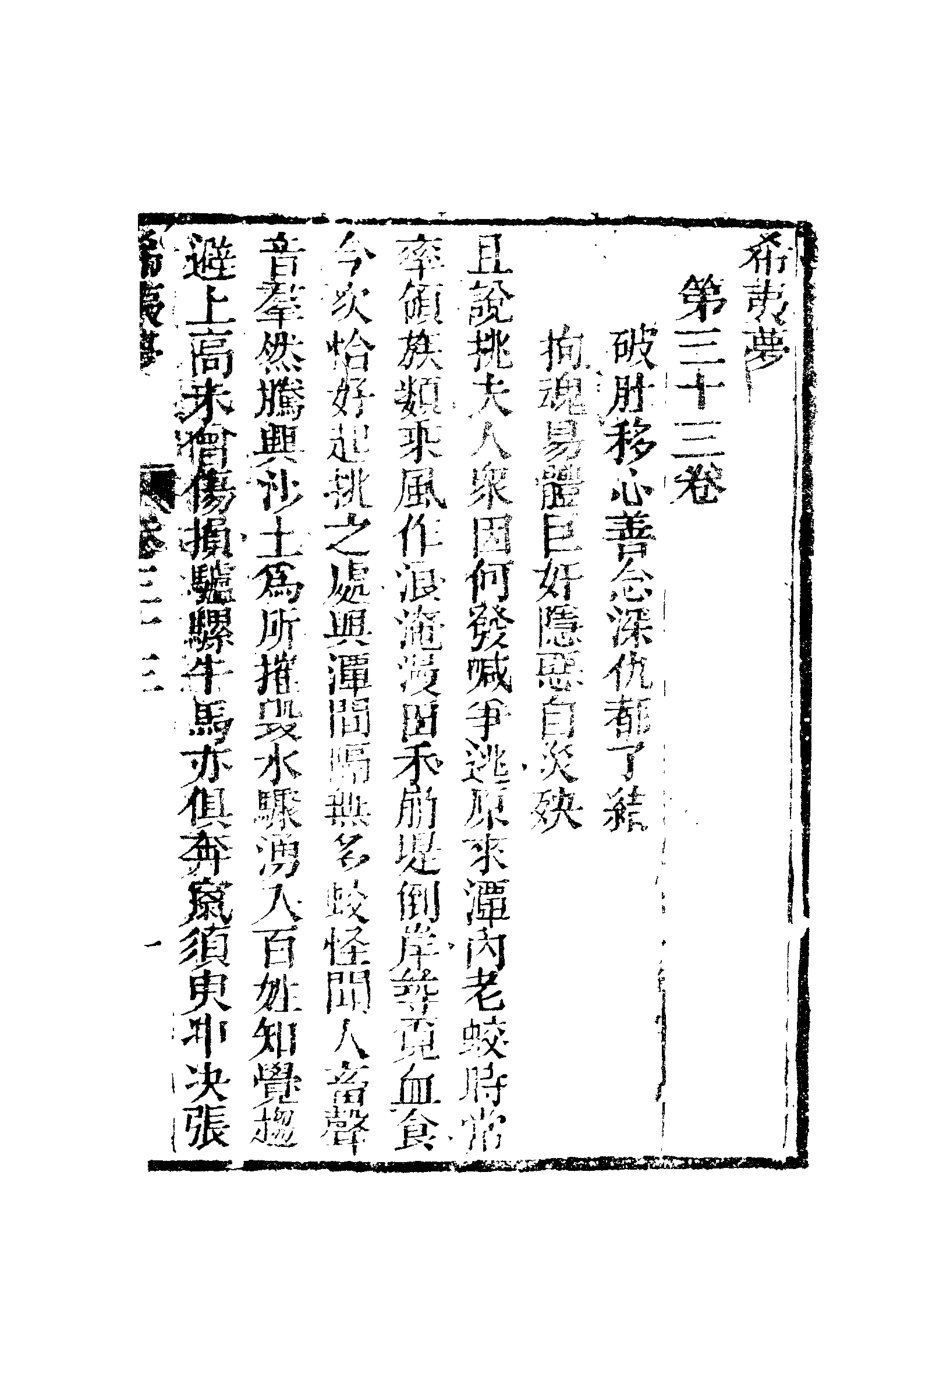 希夷夢
第三十三卷
破肚移心善念深仇都了結
拘魂易體巨奸隱惡自災殃
且說挑夫人衆因何發喊爭逃原來潭內老蛟時常
率領族類乘風作浪淹漫田禾崩堤倒岸等覔血食
今次恰好起挑之處與潭間隔無多蛟怪聞人畜聲
音羣然騰興沙土爲所摧毀水驟湧入百姓知覺趨
避上高未曾傷損驢騾牛馬亦俱奔竄須臾冲决張
希夷夢 卷三十三 一